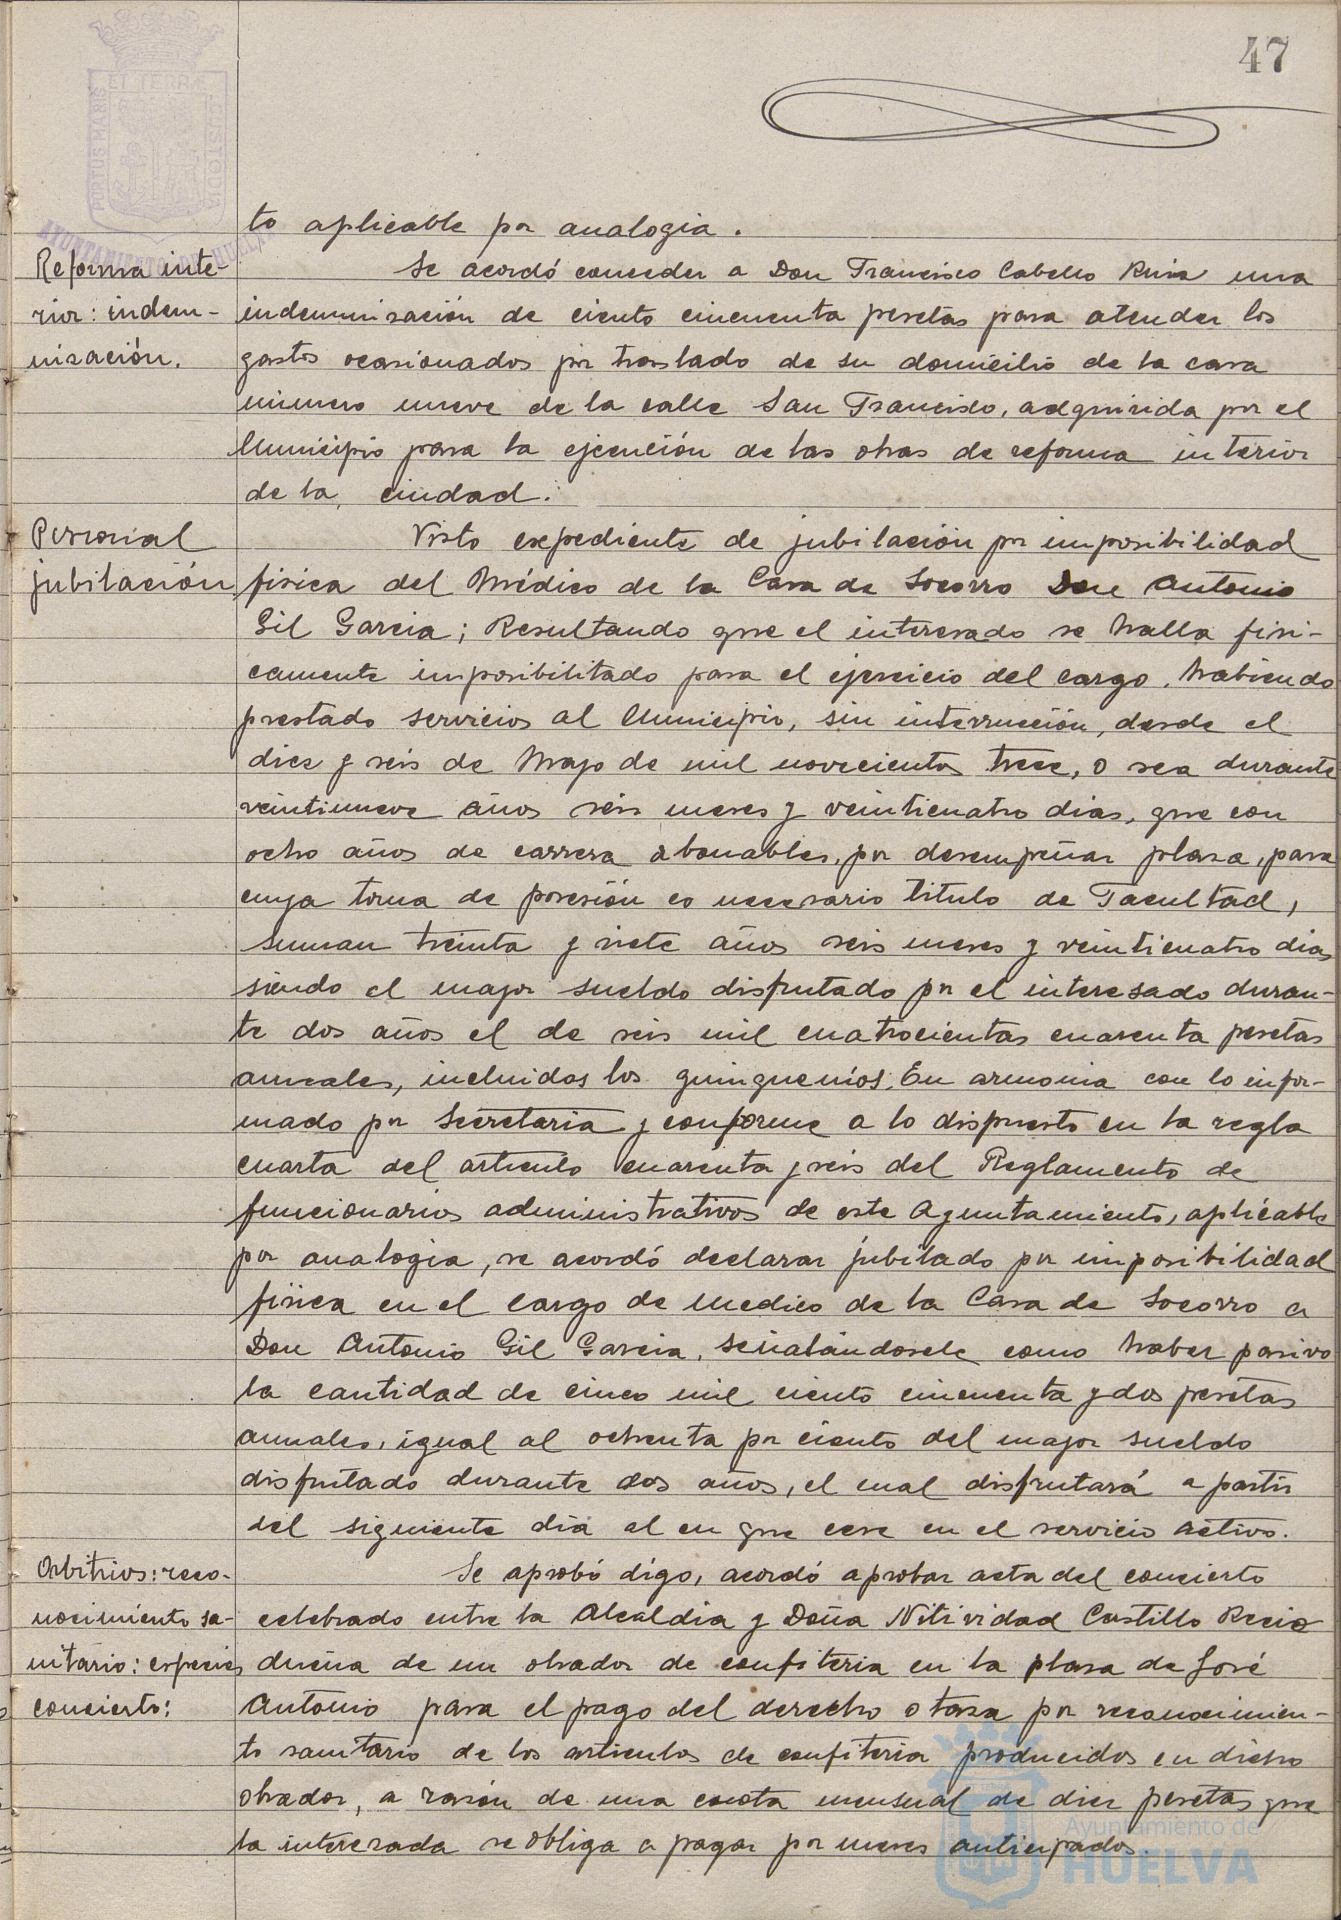 47
PORTUS MARIS ET TERRÆ CUSTODIA
AYUNTAMIENTO DE HUELVA
to aplicable por analogia.
Reforma inte-
rior: indem-
nización.
Se acordó conceder a Don Francisco Cabello Ruiz una
indemnización de ciento cincuenta pesetas para atender los
gastos ocasionados por traslado de su domicilio de la casa
número nueve de la calle San Francisco, adquirida por el
Municipio para la ejecución de las obras de reforma interior
de la ciudad.
Personal
jubilación
Visto expediente de jubilación por imposibilidad
fisica del Médico de la Casa de Socorro Don Antonio
Gil Garcia; Resultando que el interesado se halla fisi-
camente imposibilitado para el ejercicio del cargo, habiendo
prestado servicios al Municipio, sin interrucción, desde el
diez y seis de Mayo de mil novecientos trece, o sea durante
veintinueve años seis meses y veinticuatro dias, que con
ocho años de carrera abonables, por desempeñar plaza, para
cuya toma de posesión es necesario titulo de Facultad,
suman treinta y siete años seis meses y veinticuatro dias
siendo el mayor sueldo disfrutado por el interesado duran-
te dos años el de seis mil cuatrocientas cuarenta pesetas
anuales, incluidos los quinquenios. En armonia con lo infor-
mado por Secretaria y conforme a lo dispuesto en la regla
cuarta del articulo cuarenta y seis del Reglamento de
funcionarios administrativos de este Ayuntamiento, aplicable
por analogia, se acordó declarar jubilado por imposibilidad
fisica en el cargo de medico de la Casa de Socorro a
Don Antonio Gil Garcia, señalándosele como haber pasivo
la cantidad de cinco mil ciento cincuenta y dos pesetas
anuales, igual al ochenta por ciento del mayor sueldo
disfrutado durante dos años, el cual disfrutará a partir
del siguiente dia al en que cese en el servicio activo.
Arbitrios: reco-
nocimiento sa-
nitario: especies
concierto:
Se aprobó digo, acordó aprobar acta del concierto
celebrado entre la Alcaldia y Doña Nitividad Castillo Recio
dueña de un obrador de confiteria en la plaza de José
Antonio para el pago del derecho o tasa por reconocimien-
to sanitario de los articulos de confiteria producidos en dicho
obrador, a razón de una cuota mensual de diez pesetas que
la interesada se obliga a pagar por meses anticipados.
Ayuntamiento de
HUELVA